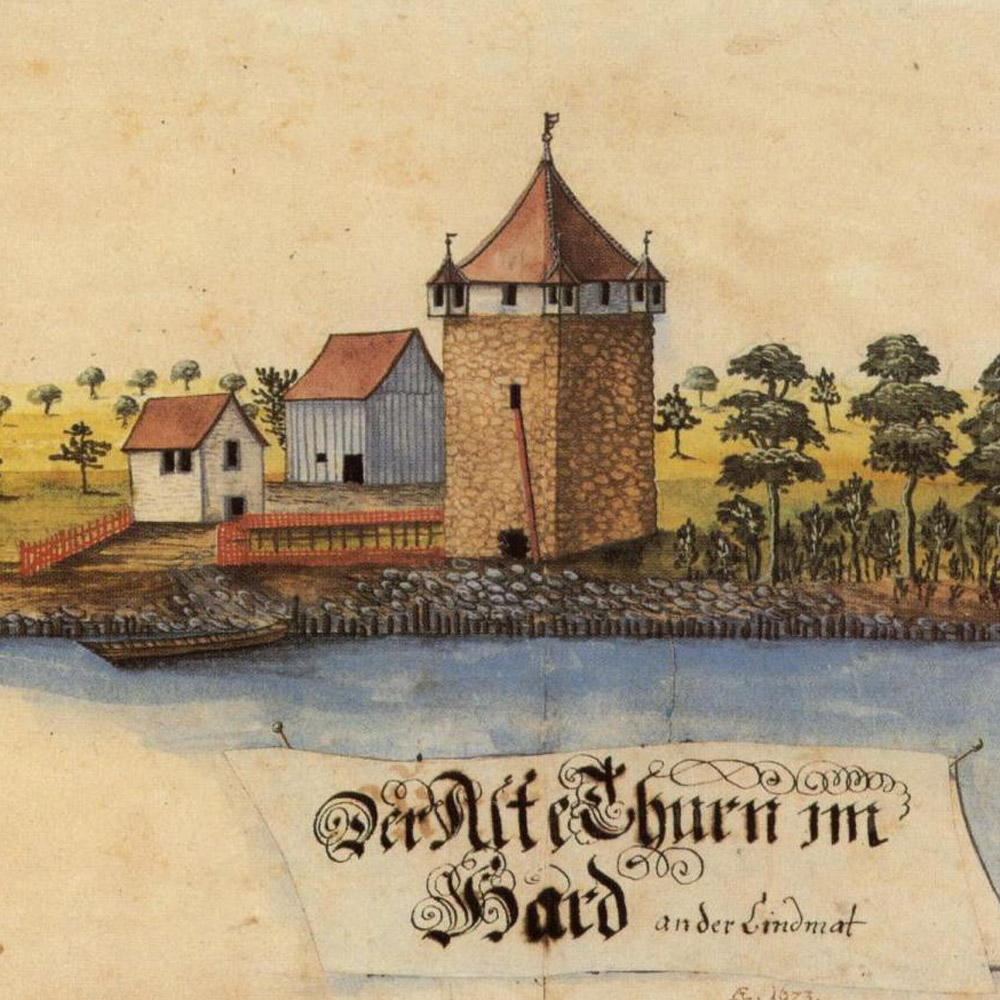 Der Alte Thurn im
Hard an der Lindmat